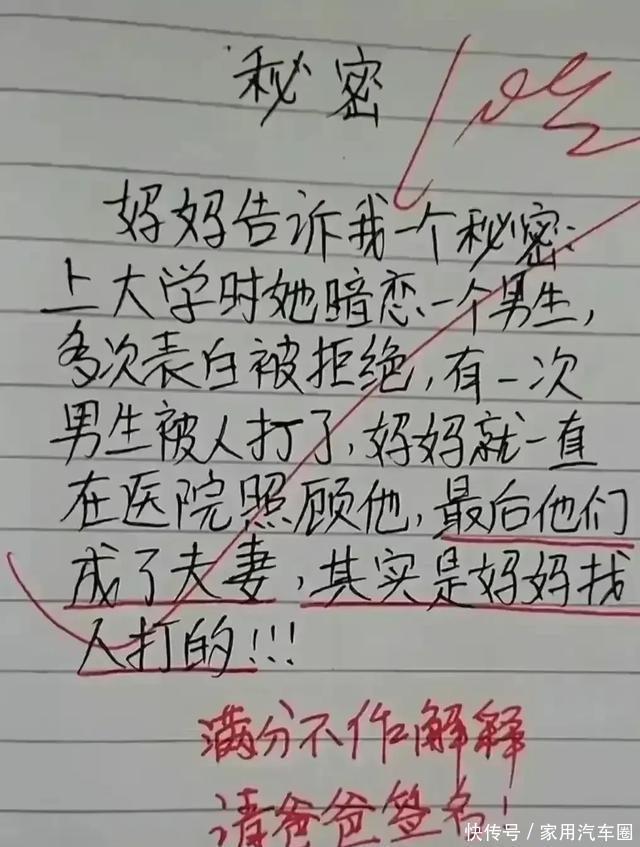 秘密
妈妈告诉我一个秘密:
上大学时她暗恋一个男生,
多次表白被拒绝,有一次
男生被人打了,妈妈就一直
在医院照顾他,最后他们
成了夫妻,其实是妈妈找
人打的!!!
满分不作解释
请爸爸签名!
快传号/家用汽车圈